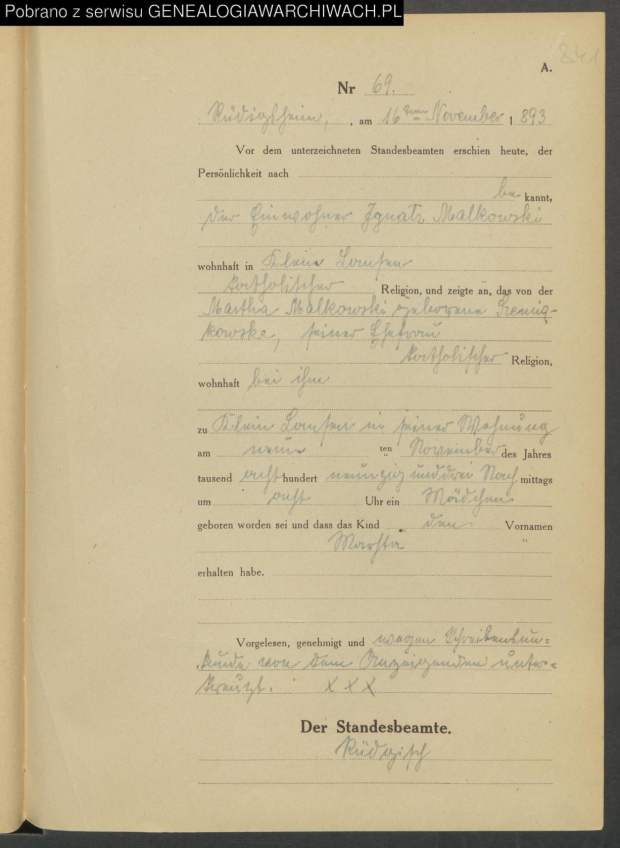 Pobrano z serwisu GENEALOGIAWARCHIWACH.PL
841
A.
Nr 69.
Rüdigsheim, , am 16ten November 1893
Vor dem unterzeichneten Standesbeamten erschien heute, der
Persönlichkeit nach
be kannt,
der Einwohner Ignatz Malkowski
wohnhaft in Klein Lansen
katholischer Religion, und zeigte an, das von der
Martha Malkowski geborene
kowska, seiner Ehefrau
katholischer Religion,
wohnhaft bei ihm
zu Klein Lansen in seiner Wohnung
am neun ten November des Jahres
tausend acht hundert neunzig und drei Nach mittags
um acht Uhr ein Mädchen
geboren worden sei und dass das Kind den Vornamen
Martha
erhalten habe.
Vorgelesen, genehmigt und wegen Schreibensun=
kunde von dem Anzeigenden unter=
kreuzt. X X X
Der Standesbeamte.